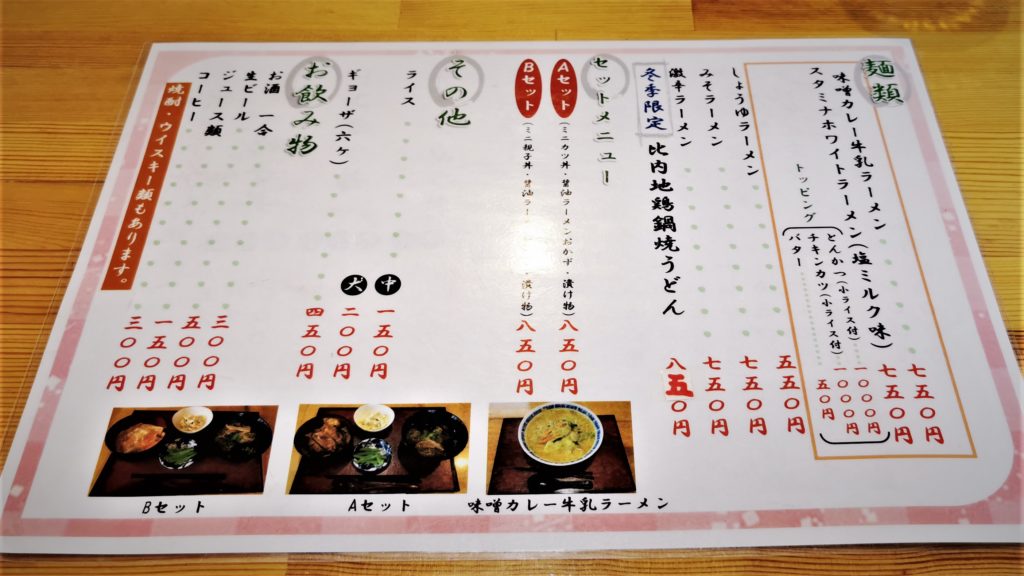 麺類
味噌カレー牛乳ラーメン 七五〇円
スタミナホワイトラーメン(塩ミルク味) 七五〇円
トッピング
とんかつ(小ライス付) 一〇〇〇円
チキンカツ(小ライス付) 一〇〇〇円
バター 五〇円
しょうゆラーメン 五五〇円
みそラーメン 七五〇円
激辛ラーメン 七五〇円
冬季限定 比内地鶏鍋焼うどん 八五〇円
セットメニュー
Aセット (ミニカツ丼・醤油ラーメンおかず・漬け物) 八五〇円
Bセット (ミニ親子丼・醤油ラー ・漬け物) 八五〇円
その他
ライス 中 一五〇円
大 二〇〇円
ギョーザ(六ケ) 四五〇円
お飲み物
お酒 一合 三〇〇円
生ビール 五〇〇円
ジュース類 一五〇円
コーヒー 三〇〇円
焼酎・ウイスキー類もあります。
味噌カレー牛乳ラーメン
Aセット
Bセット